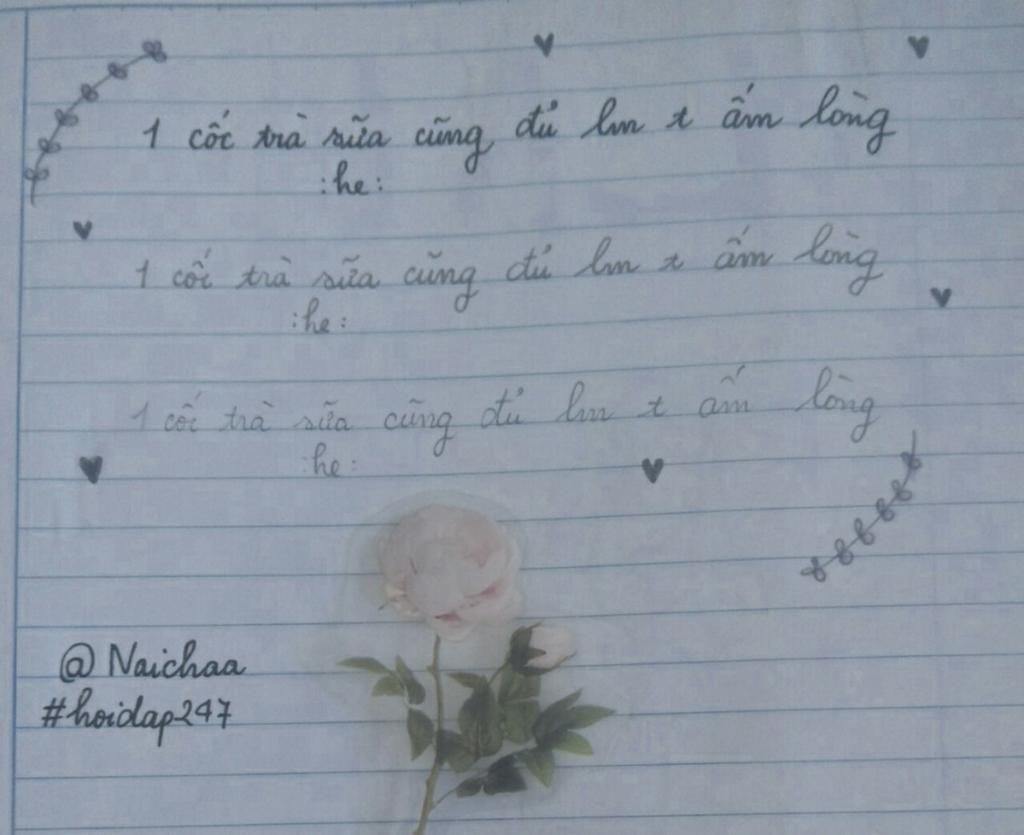 1 cốc trà sữa cũng đủ lm t ấm lòng
:he:
1 cốc trà sữa cũng đủ lm t ấm lòng
:he:
1 cốc trà sữa cũng đủ lm t ấm lòng
:he:
@Naichaa
#hoidap247